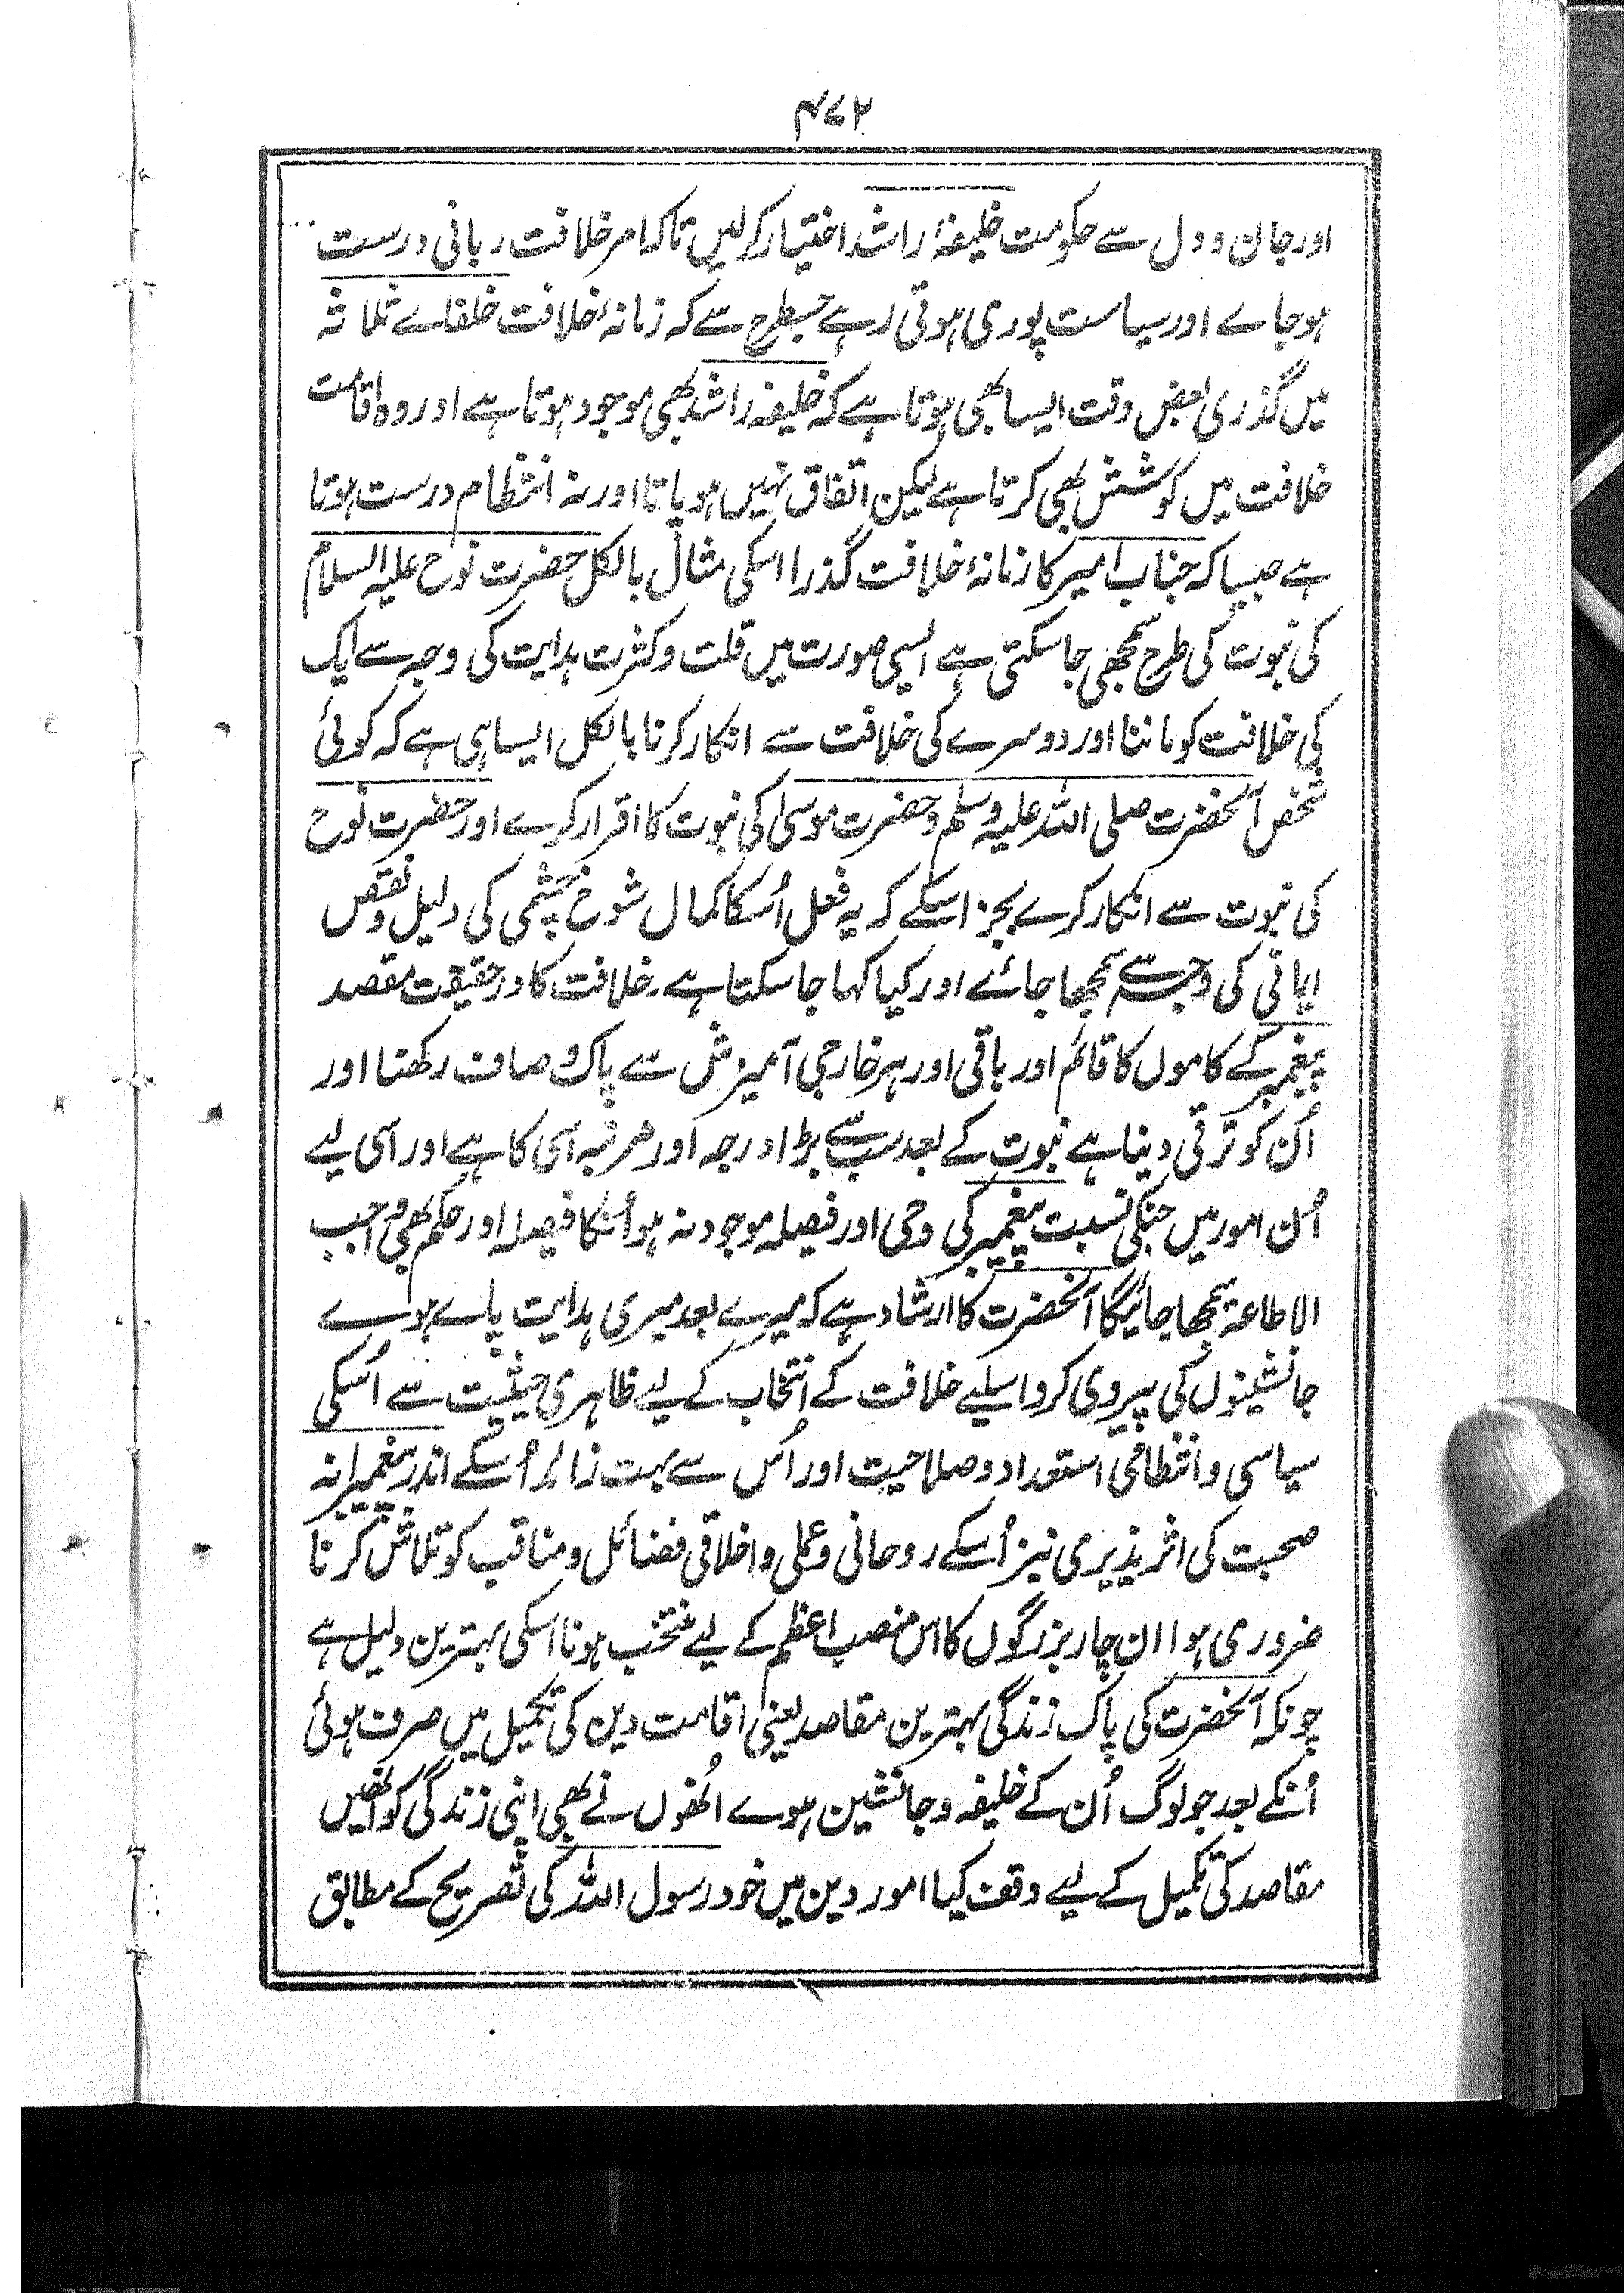 ۴۷۲
اور جان و دل سے حکومت خلیفۂ راشد اختیار کرلیں تاکہ امر خلافت ربانی درست
ہوجاے اور سیاست پوری ہوتی رہے جسطرح سے کہ زمانۂ خلافت خلفاے ثلاثہ
میں گذری بعض وقت ایسا بھی ہوتا ہے کہ خلیفہ راشد بھی موجود ہوتا ہے اور وہ اقامت
خلافت میں کوشش بھی کرتا ہے لیکن اتفاق نہیں ہو پاتا اور نہ انتظام درست ہوتا
ہے جیسا کہ جناب امیر کا زمانۂ خلافت گذرا اسکی مثال بالکل حضرت نوح علیہ السلام
کی نبوت کی طرح سمجھی جاسکتی ہے ایسی صورت میں قلت و کثرت ہدایت کی وجہ سے ایک
کی خلافت کو ماننا اور دوسرے کی خلافت سے انکار کرنا بالکل ایسا ہی ہے کہ کوئی
شخص آنحضرت صلی اللہ علیہ وسلم و حضرت موسیٰ کی نبوت کا اقرار کرے اور حضرت نوح
کی نبوت سے انکار کرے بجز اسکے کہ یہ فعل اُسکا کمال شوخ چشمی کی دلیل و نقص
ایمانی کی وجہ سے سمجھا جائے اور کیا کہا جاسکتا ہے۔ خلافت کا درحقیقت مقصد
پیغمبر کے کاموں کا قائم اور باقی اور ہر خارجی آمیزش سے پاک و صاف رکھنا اور
اُن کو ترقی دینا ہے نبوت کے بعد سب سے بڑا درجہ اور مرتبہ اسی کا ہے اور اسی لیے
اُن امور میں جنکی نسبت پیغمبر کی وحی اور فیصلہ موجود نہ ہو اُنکا فیصلہ اور حکم بھی واجب
الاطاعۃ سمجھا جائیگا آنحضرت کا ارشاد ہے کہ میرے بعد میری ہدایت پاے ہوے
جانشینوں کی پیروی کرو اسلیے خلافت کے انتخاب کے لیے ظاہری حیثیت سے اُسکی
سیاسی و انتظامی استعداد و صلاحیت اور اُس سے بہت زائد اُسکے اندر پیغمبرانہ
صحبت کی اثر پذیری نیز اُسکے روحانی و عملی و اخلاقی فضائل و مناقب کو تلاش کرنا
ضروری ہوا ان چار بزرگوں کا اس منصب اعظم کے لیے منتخب ہونا اسکی بہترین دلیل ہے
چونکہ آنحضرت کی پاک زندگی بہترین مقاصد یعنی اقامت دین کی تکمیل میں صرف ہوئی
اُنکے بعد جو لوگ اُن کے خلیفہ و جانشین ہوے اُنھوں نے بھی اپنی زندگی کو اُنھیں
مقاصد کی تکمیل کے لیے وقف کیا امور دین میں خود رسول اللہ کی تصریح کے مطابق